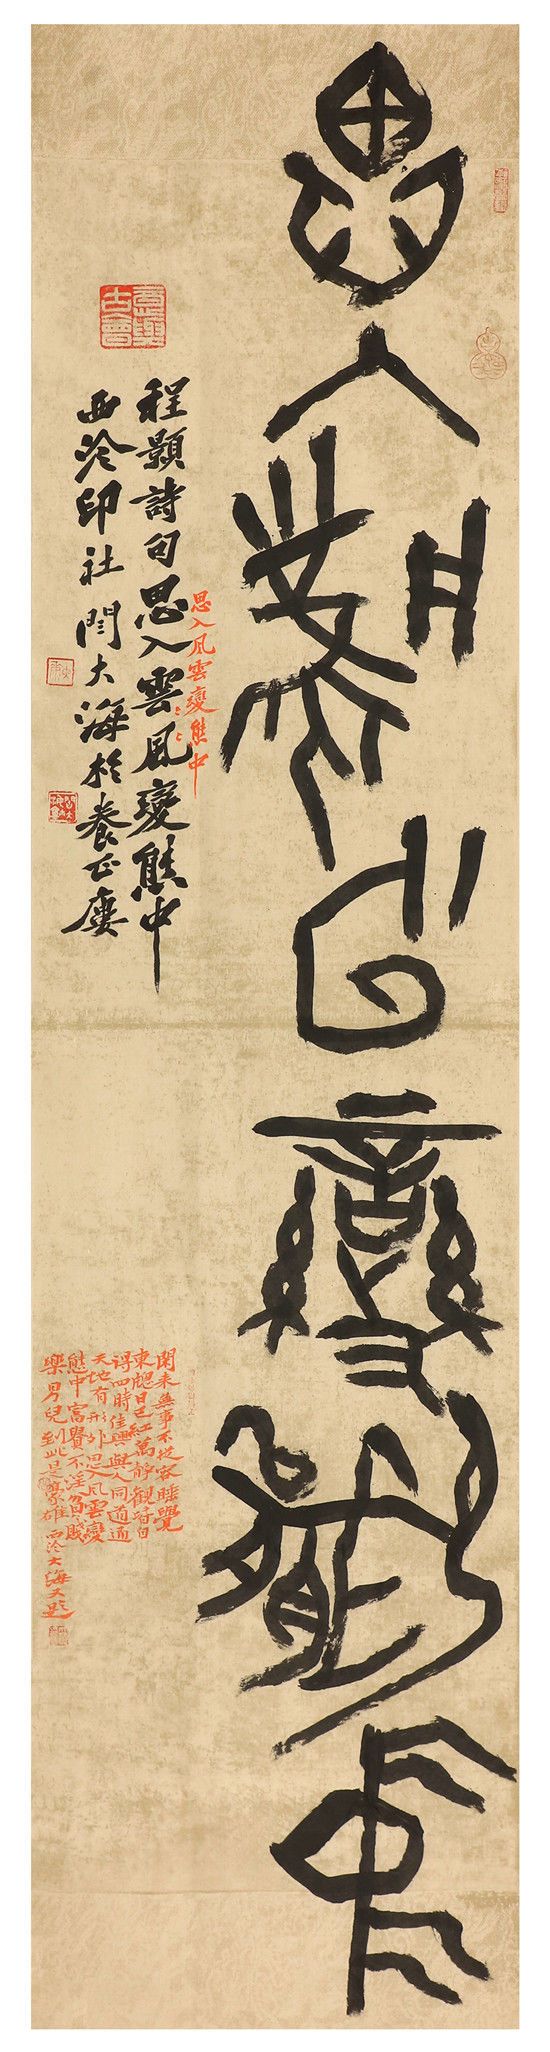 思入風雲變態中
程顥詩句思入雲風變態中
思入風雲變態中
西泠印社閆大海於養正廔
閑來無事不從容睡覺
東窗日已紅萬靜觀皆自
得四時佳興與人同道通
天地有形外思入風雲變
態中富貴不淫貧賤
樂男兒到此是豪雄西泠大海又題